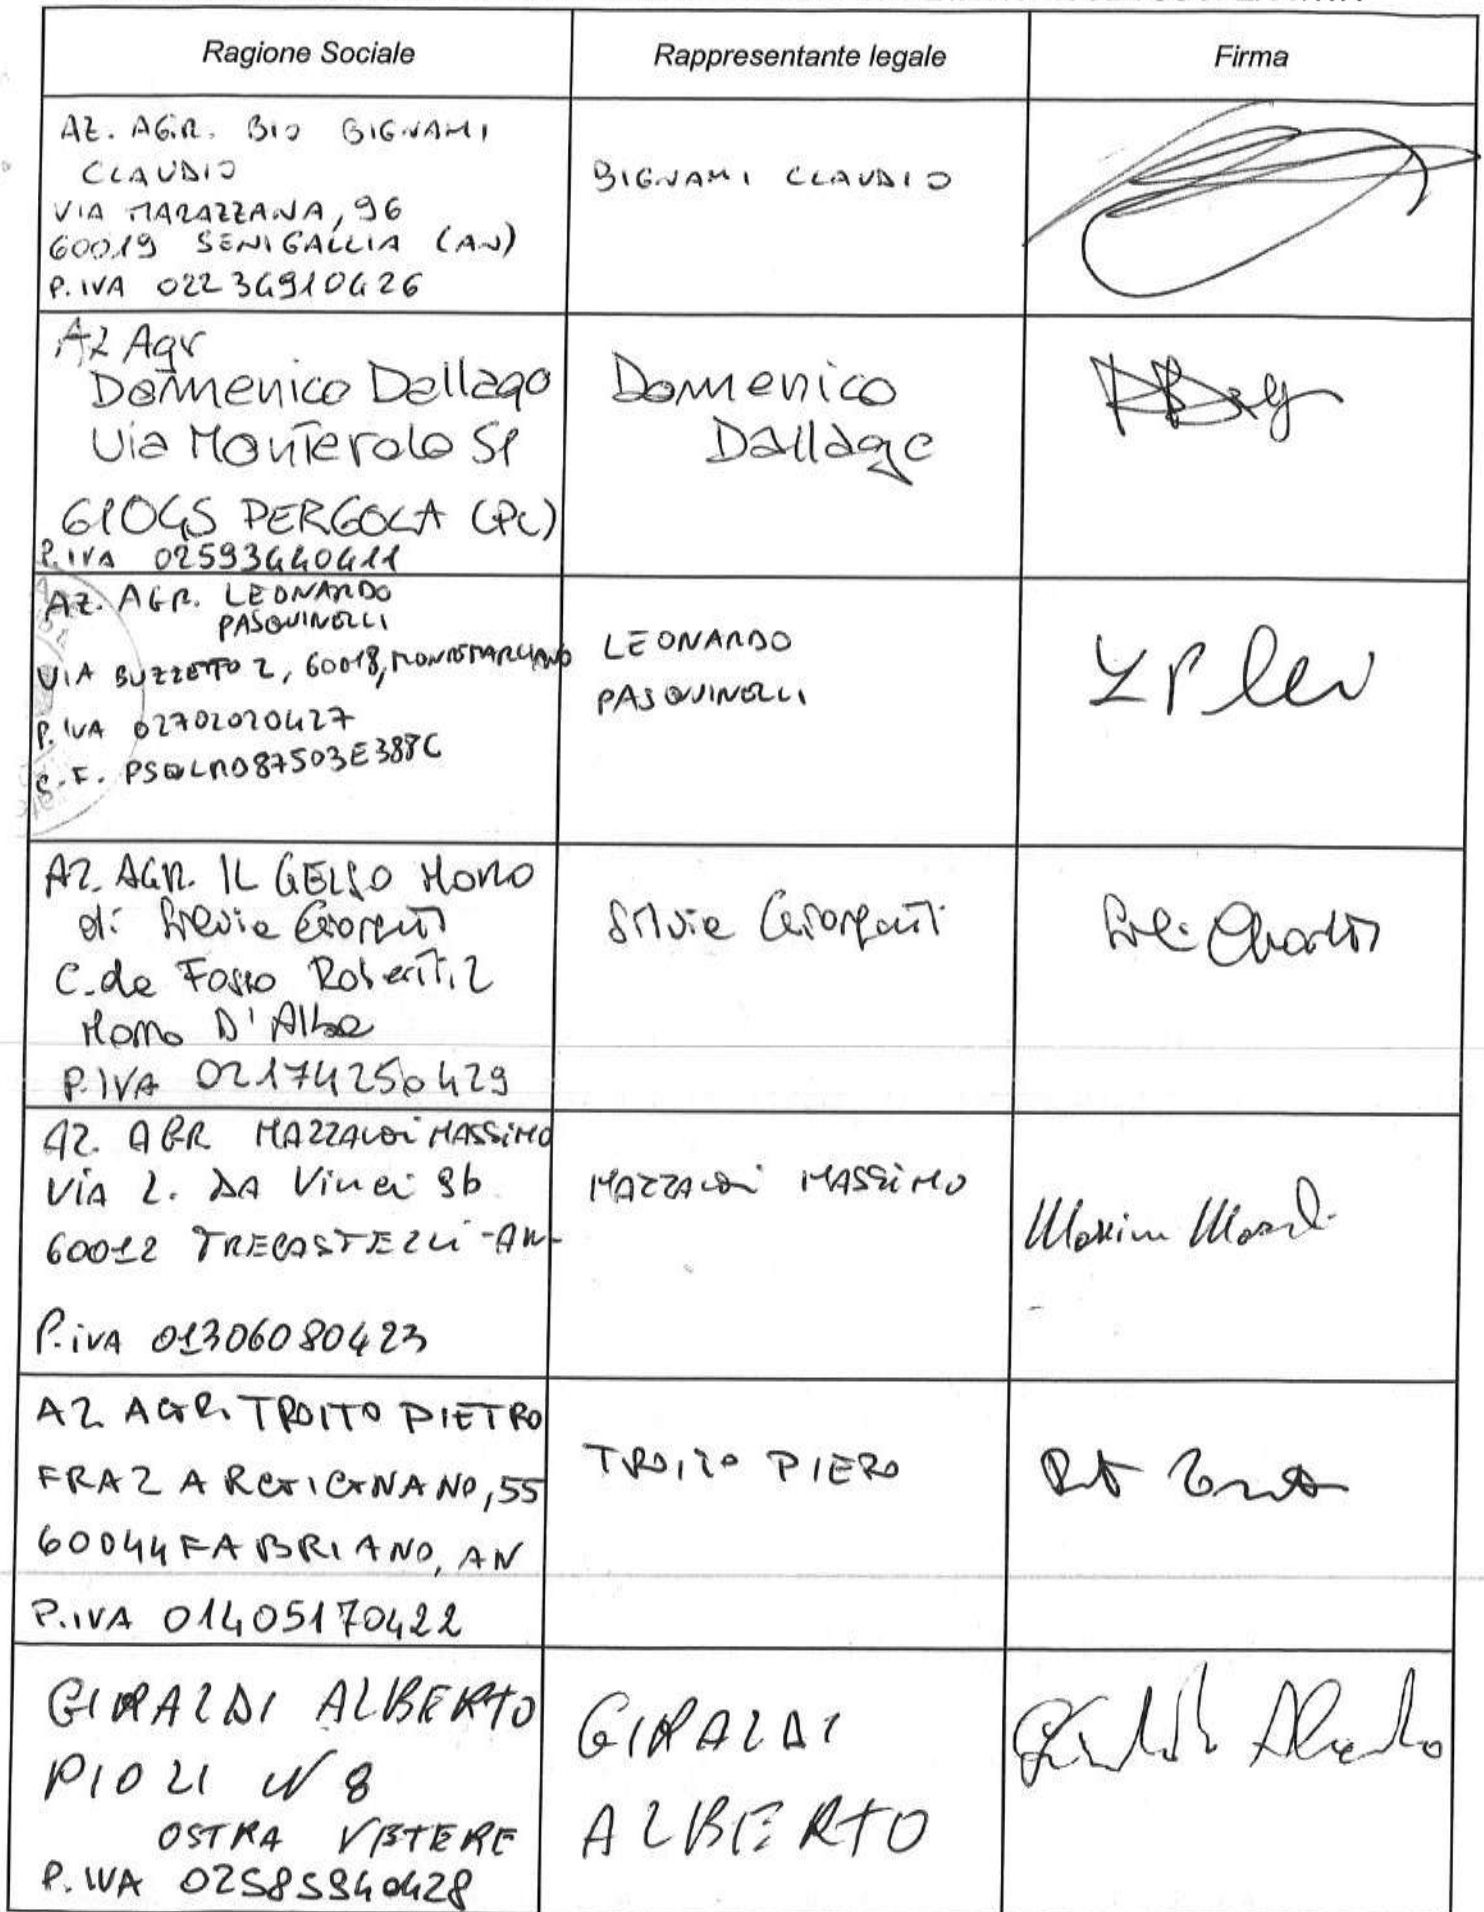 Ragione Sociale
Rappresentante legale
Firma
AZ. AGR. BIO BIGNAMI
CLAUDIO
VIA MARAZZANA, 96
60019 SENIGALLIA (AN)
P.IVA 02234910426
BIGNAMI CLAUDIO
AZ Agr
Domenico Dallago
Via Monterolo
61045 PERGOLA
P.IVA 02593440411
Domenico
Dallago
AZ. AGR. LEONARDO
PASQUINELLI
VIA BUZZETTO 2, 60018, MONTEMARCIANO
P.IVA 02702020427
C.F. PSQLRD87S03E388C
LEONARDO
PASQUINELLI
AZ. AGR. IL GELSO MORO
di Silvia
C.da Fosso Roberti, 2
Morro D'Alba
P.IVA 02174250429
Silvia
AZ. AGR MAZZAUOI MASSIMO
VIA L. DA Vinci 9b
60012 TRECASTELLI -AN-
P.iVA 01306080423
MASSIMO
AZ AGR. TROITO PIETRO
FRAZ ARGIGNANO, 55
60044 FABRIANO, AN
P.IVA 01405170422
TROITO PIERO
GIRALDI ALBERTO
PIOLI N 8
OSTRA VETERE
P.IVA 02585940428
GIRALDI
ALBERTO